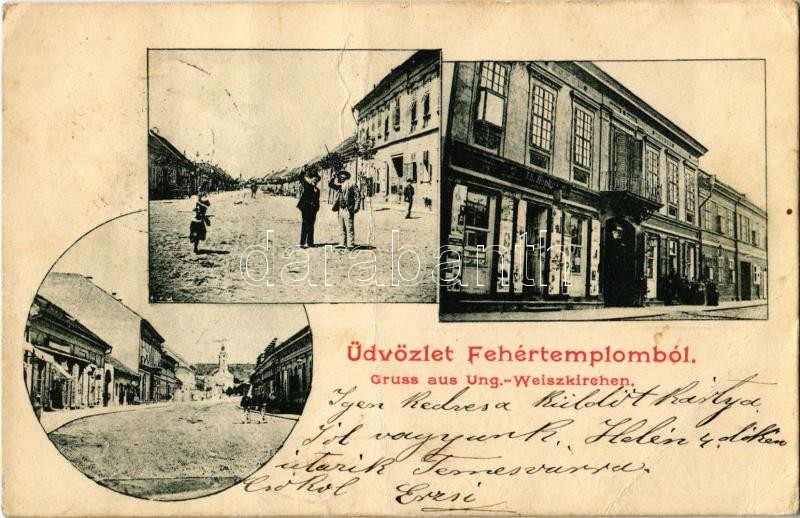 darabanth
Üdvözlet Fehértemplomból.
Gruss aus Ung.-Weiszkirchen.
Igen kedves a küldöt kártya.
Jól vagyunk. Helén 4.
utazik Temesvárra.
Csókol Erzsi